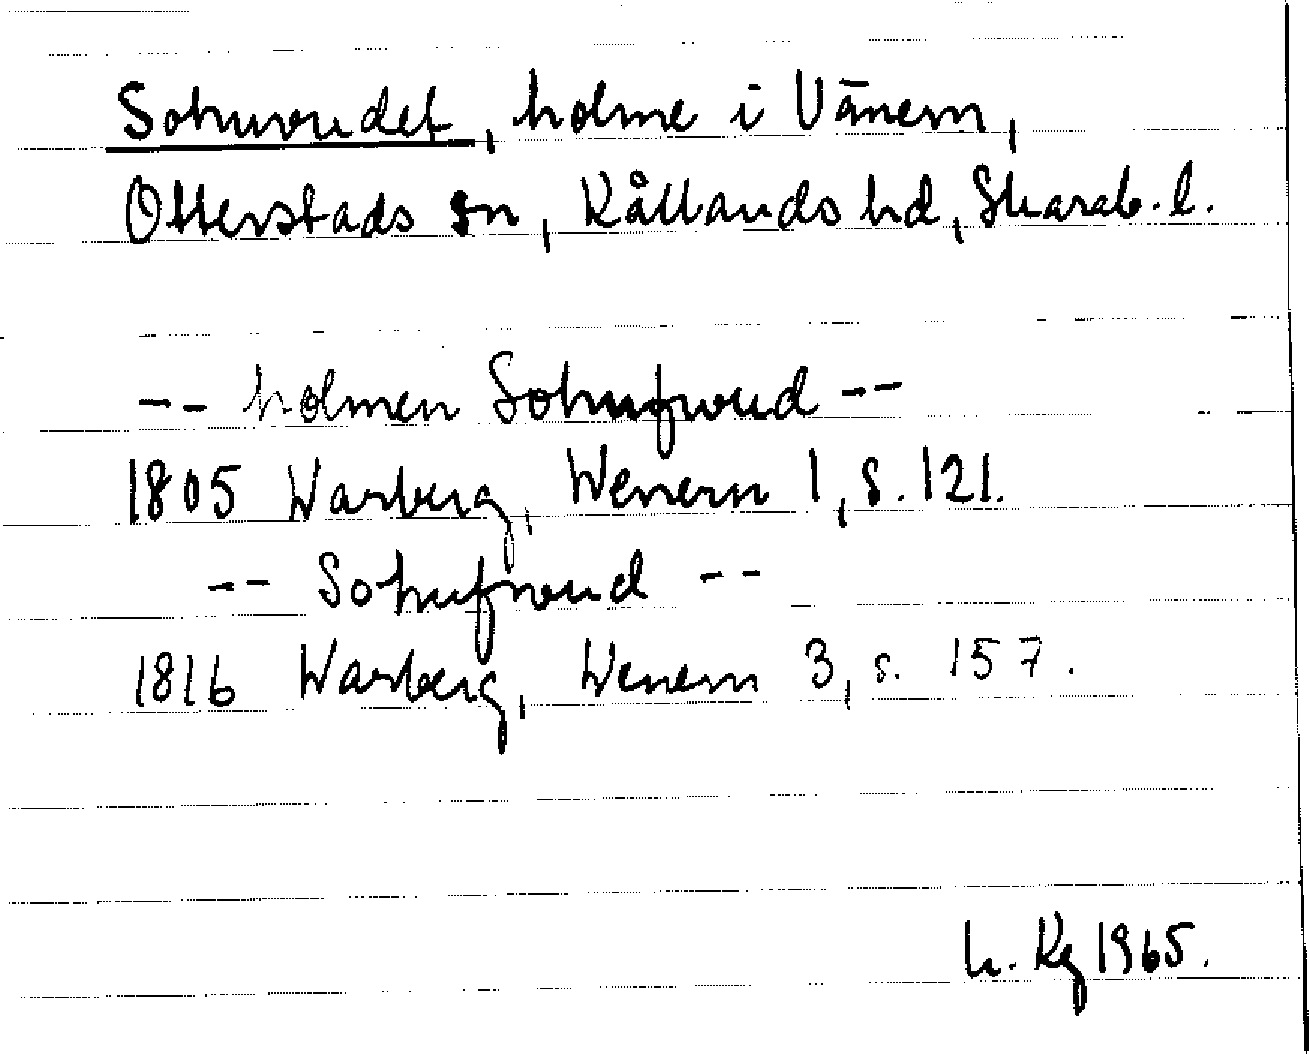 Sohuvudet, holme i Vänern,
Otterstads sn, Kållands hd, Skarab. l.
-- holmen Sohufwud --
1805 Warberg, Wenern 1, s. 121.
-- Sohufwud --
1816 Warberg, Wenern 3, s. 157.
Kg 1965.